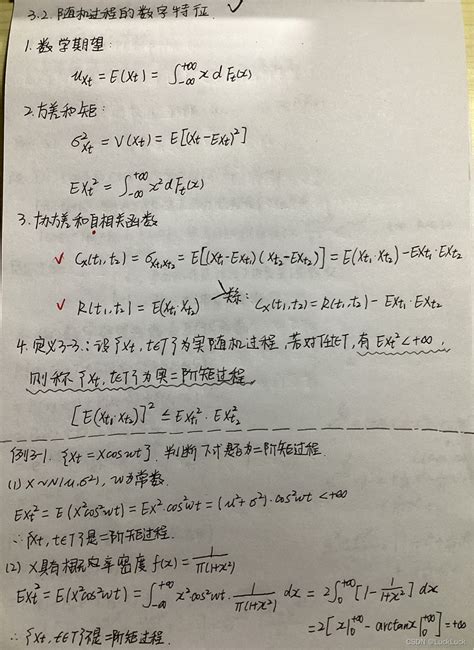 3.2. 随机过程的数字特征
1. 数学期望:
μxt = E(Xt) = ∫_{-∞}^{+∞} x d Ft(x)
2. 方差和矩:
σ²xt = V(Xt) = E[(Xt-EXt)²]
EXt² = ∫_{-∞}^{+∞} x² d Ft(x)
3. 协方差和自相关函数
✓ Cx(t1,t2) = σxt1,xt2 = E[(Xt1-EXt1)(Xt2-EXt2)] = E(Xt1·Xt2) - EXt1·EXt2
✓ R(t1,t2) = E(Xt1·Xt2) 关系: Cx(t1,t2) = R(t1,t2) - EXt1·EXt2
4. 定义3-3: 设{Xt, t∈T}为实随机过程, 若对∀t∈T, 有EXt²<+∞,
则称{Xt, t∈T}为实二阶矩过程.
[E(Xt1·Xt2)]² ≤ EXt1²·EXt2²
例3-1. {Xt = Xcoswt}. 判断下述是否为二阶矩过程.
(1) X~N(μ,σ²), w为常数.
EXt² = E(X²cos²wt) = EX²·cos²wt = (μ²+σ²)·cos²wt <+∞
∴{Xt, t∈T}是二阶矩过程.
(2) X具有概率密度 f(x) = 1/π(1+x²)
EXt² = E(X²cos²wt) = ∫_{-∞}^{+∞} x²cos²wt · 1/π(1+x²) dx = 2∫_0^{+∞} [1 - 1/1+x²] dx
= 2[x|_0^{+∞} - arctanx|_0^{+∞}] = +∞
∴{Xt, t∈T}不是二阶矩过程.
CSDN @LuckLock